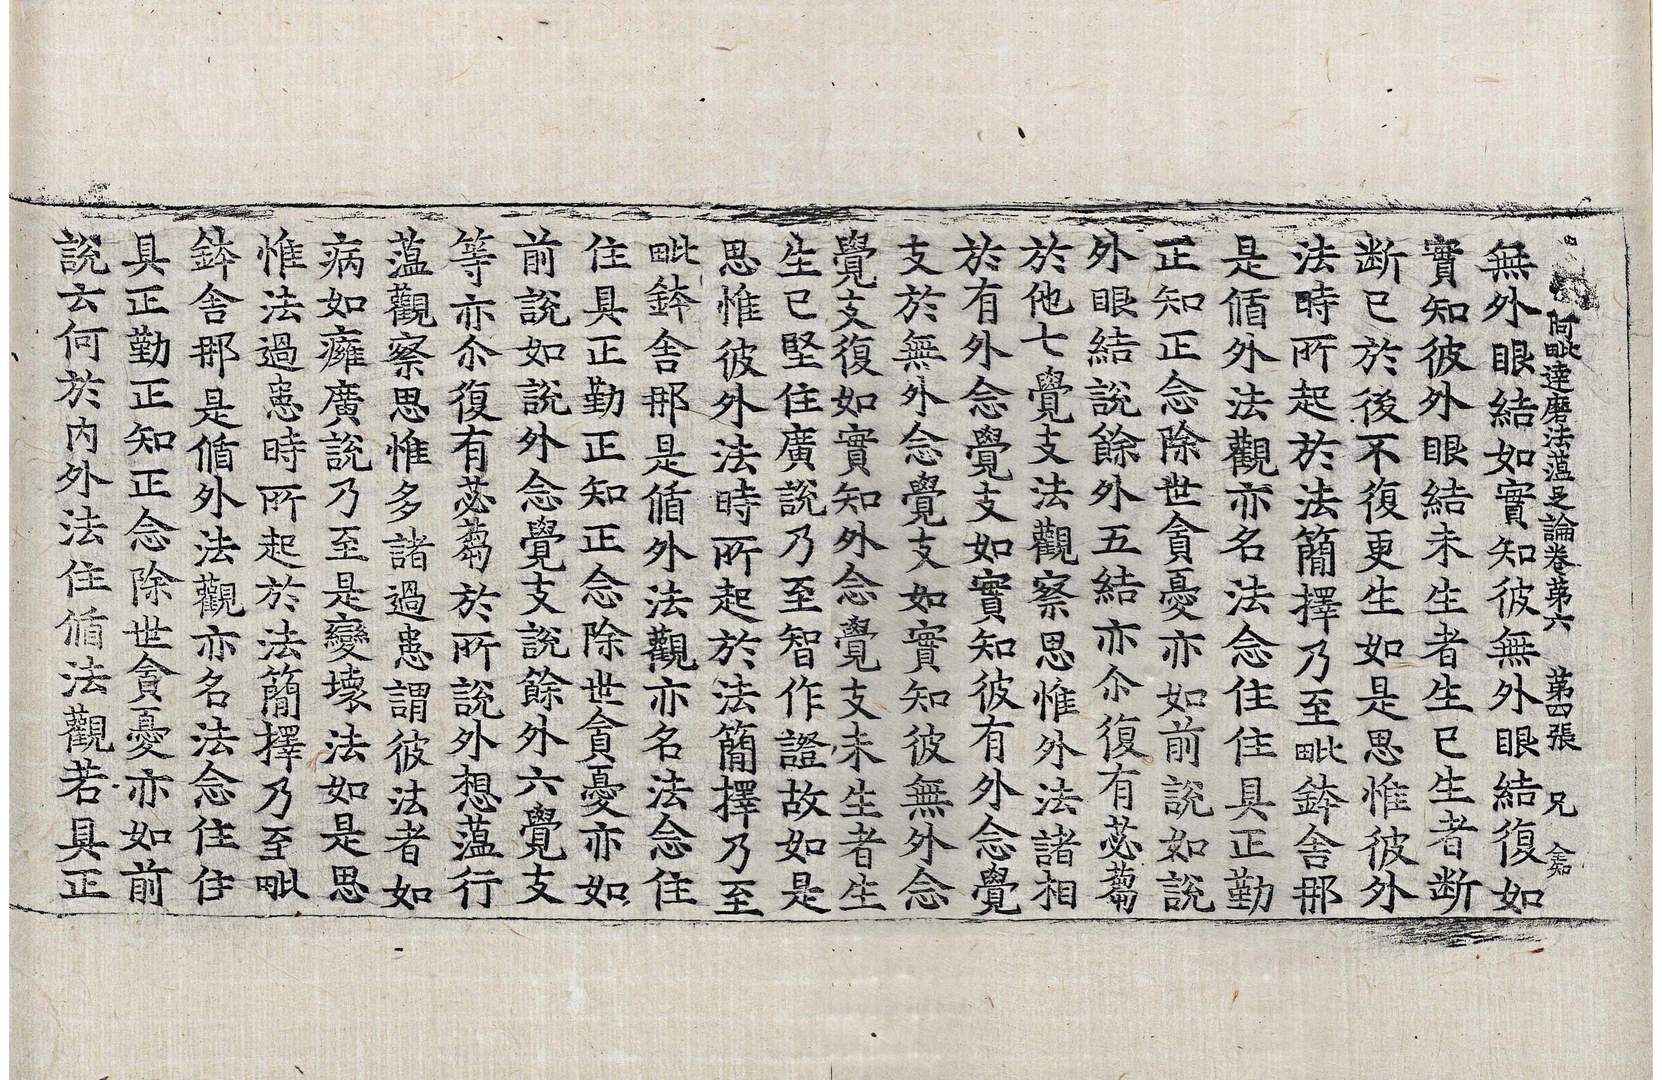 阿毗達磨法蕴足論卷第六 第四張 兄
無外眼結如實知彼無外眼結復如
實知彼外眼結未生者生已生者断
断已於後不復更生如是思惟彼外
法時所起於法簡擇乃至毗鉢舎那
是循外法觀亦名法念住住具正勤
正知正念除世貪憂亦如前說如說
外眼結說餘外五結亦尒復有苾蒭
於他七覺支法觀察思惟外法諸相
於有外念覺支如實知彼有外念覺
支於無外念覺支如實知彼無外念
覺支復如實知外念覺支未生者生
生已堅住廣說乃至智作證故如是
思惟彼外法時所起於法簡擇乃至
毗鉢舎那是循外法觀亦名法念住
住具正勤正知正念除世貪憂亦如
前說如說外念覺支說餘外六覺支
等亦尒復有苾蒭於所說外想蕴行
蕴觀察思惟多諸過患謂彼法者如
病如癰廣說乃至是變壞法如是思
惟法過患時所起於法簡擇乃至毗
鉢舎那是循外法觀亦名法念住住
具正勤正知正念除世貪憂亦如前
說云何於內外法住循法觀若具正